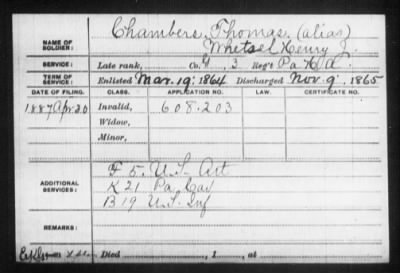 NAME OF SOLDIER: Chambers, Thomas. (alias)
Whetsel Henry J.
SERVICE: Late rank, Co. 3 Reg't Pa H A.
TERM OF SERVICE: Enlisted Mar. 19, 1864 Discharged Nov. 9, 1865
DATE OF FILING. CLASS. APPLICATION NO. LAW. CERTIFICATE NO.
1887 Apr. 20 Invalid, 608.203
Widow,
Minor,
ADDITIONAL SERVICES: F 5. U.S. Art
K 21 Pa Cav
B 19 U.S. Inf
REMARKS:
Died , 1 , at